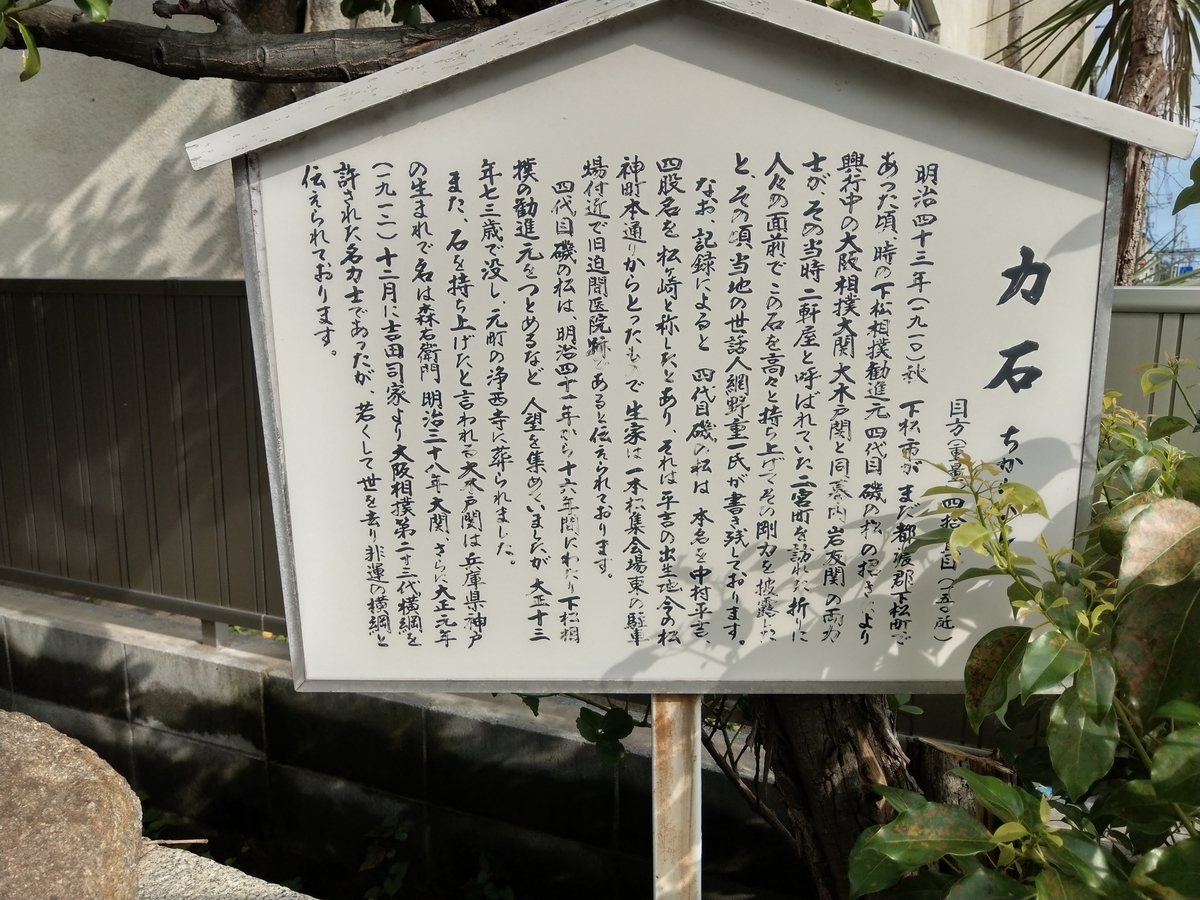 力石
目方 四拾 目(一五〇瓩)
明治四十三年(一九一〇)秋 下松市が まだ都濃郡下松町で
あった頃、時の下松相撲勧進元 四代目 磯の松の招きにより
興行中の大阪相撲大関大木戸関と同幕内 岩友関の両力
士が、その当時二軒屋と呼ばれていた二宮町を訪れた折りに
人々の面前で この石を高々と持ち上げてその剛力を披露した
と、その頃 当地の世話人網野重一氏が書き残しております。
なお、記録によると 四代目磯の松は 本名を中村平吉、
四股名を 松ヶ崎と称したとあり、それは平吉の出生地今の松
神町本通りからとったもので 生家は一本松集会場東の駐車
場付近で旧迫間医院跡であると伝えられております。
四代目磯の松は、明治四十一年から十六年間にわたり下松相
撲の勧進元をつとめるなど 人望を集めていましたが 大正十三
年七三歳で没し、元町の浄西寺に葬られました。
また、石を持ち上げたと言われる大木戸関は兵庫県神戸
の生まれで名は森右衛門 明治三十八年大関、さらに大正元年
(一九一二)十二月に吉田司家より大阪相撲第二十三代横綱を
許された名力士であったが、若くして世を去り非運の横綱と
伝えられております。